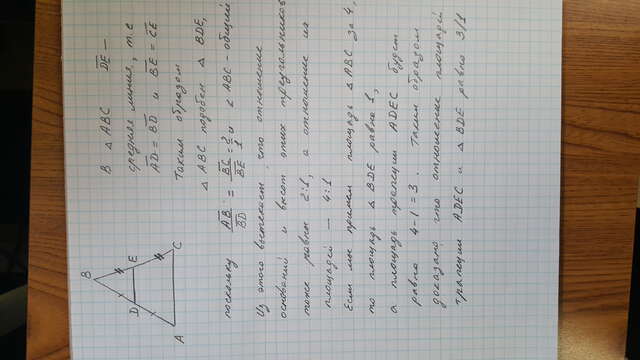 В △ ABC DE —
средняя линия, т.е
AD = BD и BE = CE
Таким образом
△ ABC подобен △ BDE,
поскольку AB/BD = BC/BE = 2/1 и ∠ ABC - общий
Из этого вытекает что отношение
оснований и высот этих треугольников
тоже равны 2:1, а отношение их
площадей — 4:1
Если мы примем площадь △ ABC за 4,
то площадь △ BDE равна 1,
а площадь трапеции ADEC будет
равна 4-1=3. Таким образом
доказано что отношение площадей
трапеции ADEC и △ BDE равно 3/1
B
D
E
A
C